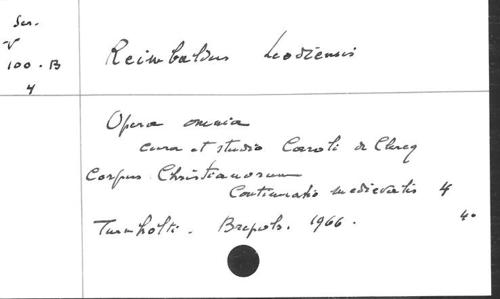 Ser.
V
100-B
4
Reimbaldus Leodiensis
Opera omnia
cura et studio Caroli de Clercq
Corpus Christianorum
Continuatio medievalis 4
Turnholti. Brepols. 1966.
4°